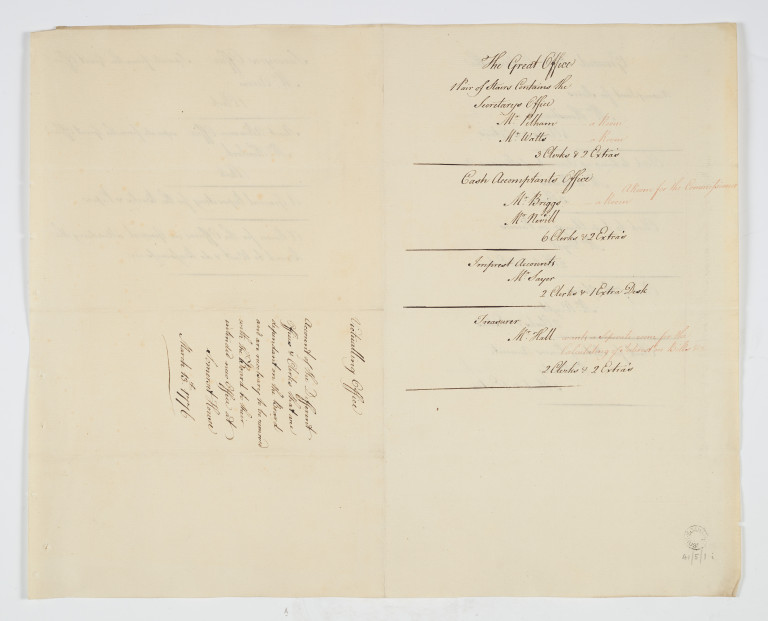 The Great Office
1 Pair of Stairs Contains the
Secretarys Office
Mr Pelham a Room
Mr Watts a Room
3 Clerks & 2 Extra's
Cash Accomptants Office
A Room for the Commissioner
Mr Briggs a Room
Mr Nevill
6 Clerks & 2 Extra's
Imprest Accounts
Mr Sayer
2 Clerks & 1 Extra Desk
Treasurer
Mr Hall wants a separate room for the
2 Clerks & 2 Extra's
Victualling Office
Account of the Different
Offices & Clerks that are
dependant on the Board
and are necessary to be removed
with the Board to their
intended new Office at
Somerset House
March 13th 1776